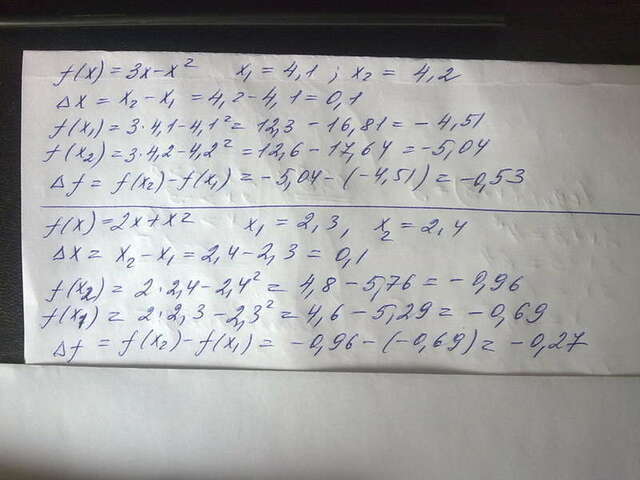 f(x) = 3x - x² x₁ = 4,1 ; x₂ = 4,2
Δx = x₂ - x₁ = 4,2 - 4,1 = 0,1
f(x₁) = 3·4,1 - 4,1² = 12,3 - 16,81 = - 4,51
f(x₂) = 3·4,2 - 4,2² = 12,6 - 17,64 = -5,04
Δf = f(x₂) - f(x₁) = - 5,04 - (- 4,51) = -0,53
f(x) = 2x + x² x₁ = 2,3, x₂ = 2,4
Δx = x₂ - x₁ = 2,4 - 2,3 = 0,1
f(x₂) = 2·2,4 - 2,4² = 4,8 - 5,76 = - 0,96
f(x₁) = 2·2,3 - 2,3² = 4,6 - 5,29 = - 0,69
Δf = f(x₂) - f(x₁) = - 0,96 - (-0,69) = - 0,27